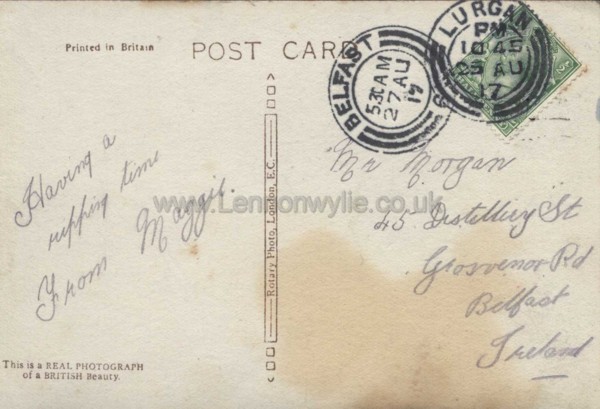 Printed in Britain
POST CARD
BELFAST
5.30 AM
27 AU
17
LURGAN
PM
10 45
25 AU
17
Having a
ripping time
From Maggie.
Rotary Photo, London, E.C.
Mr Morgan
45 Distillery St
Grosvenor Rd
Belfast
Ireland
www.Lennonwylie.co.uk
This is a REAL PHOTOGRAPH
of a BRITISH Beauty.